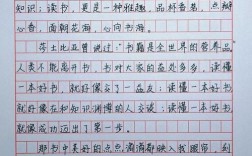 知识；读书，更是一种雅趣，品析香茗，点瓣
心香，面朝花海，心向书海。
莎士比亚曾说过："书籍是全世界的营养品"
人类不能离开书，书对大家的益处多多，读懂
一本好书，就好像交了一益友；读懂一本好书
就好像在和知识渊博的人交谈；读懂一本好书
就像成功迈出了第一步。
那书中美好的点点滴滴都映入我眼帘，刻